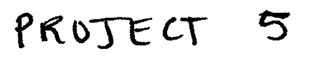 PROJECT 5